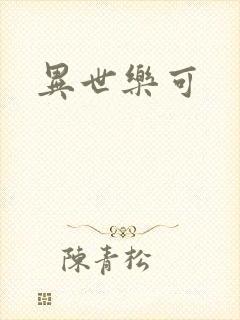 異世樂可
陳青松